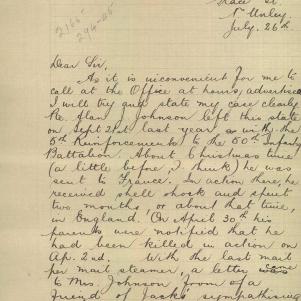 St.
Nth Unley.
July. 26th
2165
294-25
Dear Sir,
As it is inconvenient for me to
call at the Office at hours, advertised
I will try and state my case clearly
Pte. Alan J Johnson left this state
on Sept 21st last year with the
5th Reinforcements to the 50th Infantry
Battalion. About Christmas time
(a little before, I think) he was
sent to France. In action there, he
received shell shock and spent
two months or about that time,
in England. On April 30th his
parents were notified that he
had been killed in action on
Ap. 2nd. With the last mail
per mail steamer, a letter came
to Mrs. Johnson from a
friend of Jack's sympathising